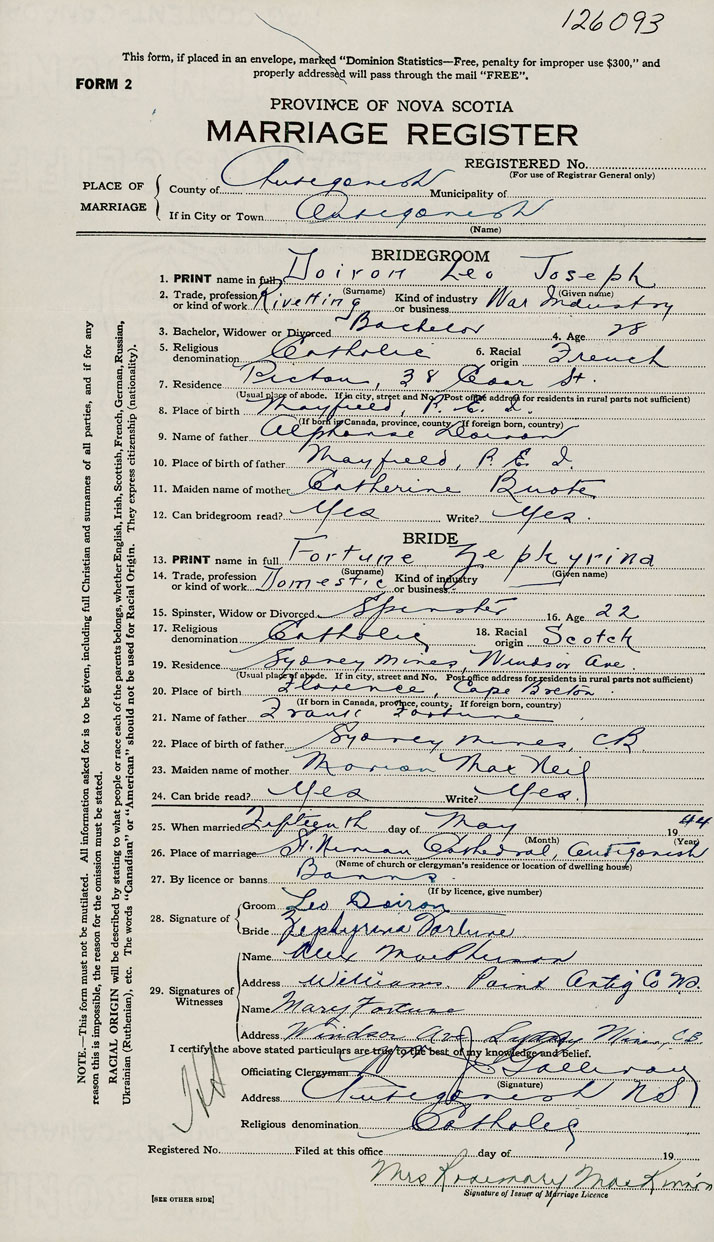 126093
This form, if placed in an envelope, marked "Dominion Statistics—Free, penalty for improper use $300," and
properly addressed will pass through the mail "FREE".
FORM 2
PROVINCE OF NOVA SCOTIA
MARRIAGE REGISTER
REGISTERED No.
(For use of Registrar General only)
PLACE OF MARRIAGE
County of Antigonish Municipality of
If in City or Town Antigonish
(Name)
BRIDEGROOM
1. PRINT name in full Doiron Leo Joseph
(Surname) (Given name)
2. Trade, profession or kind of work Rivetting Kind of industry or business War Industry
3. Bachelor, Widower or Divorced Bachelor 4. Age 28
5. Religious denomination Catholic 6. Racial origin French
7. Residence Pictou, 38 St.
(Usual place of abode. If in city, street and No. Post office address for residents in rural parts not sufficient)
8. Place of birth Mayfield, P. E. I.
(If born in Canada, province, county. If foreign born, country)
9. Name of father Alphonse Doiron
10. Place of birth of father Mayfield, P. E. I.
11. Maiden name of mother Catherine Buote
12. Can bridegroom read? Yes Write? Yes.
BRIDE
13. PRINT name in full Fortune Zephyrina
(Surname) (Given name)
14. Trade, profession or kind of work Domestic Kind of industry or business
15. Spinster, Widow or Divorced Spinster 16. Age 22
17. Religious denomination Catholic 18. Racial origin Scotch
19. Residence Sydney Mines, Windsor Ave.
(Usual place of abode. If in city, street and No. Post office address for residents in rural parts not sufficient)
20. Place of birth Florence, Cape Breton.
(If born in Canada, province, county, If foreign born, country)
21. Name of father Frank Fortune
22. Place of birth of father Sydney Mines, CB
23. Maiden name of mother Marion MacNeil
24. Can bride read? Yes Write? Yes
25. When married Fifteenth day of May 1944
(Month) (Year)
26. Place of marriage St. Ninian Cathedral, Antigonish
(Name of church or clergyman's residence or location of dwelling house)
27. By licence or banns Banns
(If by licence, give number)
28. Signature of
Groom Leo Doiron
Bride Zephyrina Fortune
29. Signatures of Witnesses
Name Alex MacPherson
Address Williams Point Antig Co NS.
Name Mary Fortune
Address Windsor Ave Sydney Mines, C.B.
I certify the above stated particulars are true to the best of my knowledge and belief.
Officiating Clergyman
(Signature)
Address Antigonish NS
Religious denomination Catholic
Registered No. Filed at this office day of 19
Mrs Rosemary MacKinnon
Signature of Issuer of Marriage Licence
[SEE OTHER SIDE]
NOTE.—This form must not be mutilated. All information asked for is to be given, including full Christian and surnames of all parties, and if for any
reason this is impossible, the reason for the omission must be stated.
RACIAL ORIGIN will be described by stating to what people or race each of the parents belongs, whether English, Irish, Scottish, French, German, Russian,
Ukrainian (Ruthenian), etc. The words "Canadian" or "American" should not be used for Racial Origin. They express citizenship (nationality).